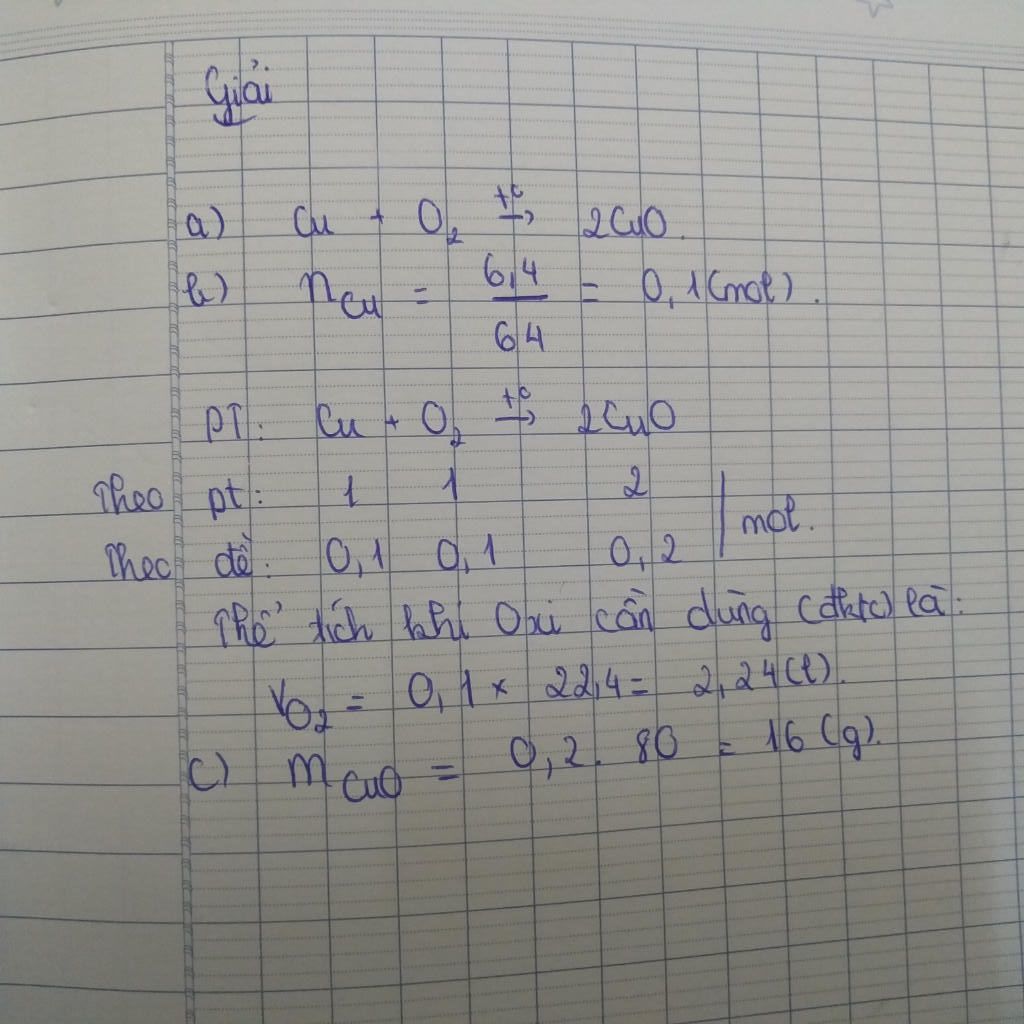 Giải
a) Cu + O₂ t° → 2CuO.
b) n Cu = 6,4 / 64 = 0,1 (mol).
PT: Cu + O₂ t° → 2CuO
Theo pt: 1 1 2
Theo đề: 0,1 0,1 0,2 | mol.
Thể tích khí Oxi cần dùng (đktc) là:
V O₂ = 0,1 × 22,4 = 2,24 (l).
c) m CuO = 0,2 . 80 = 16 (g).